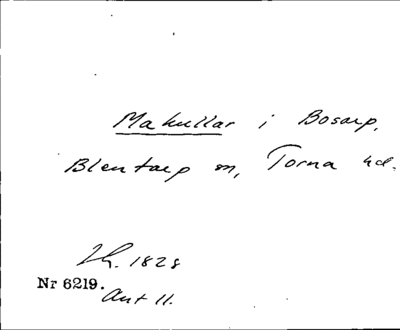 Makullar i Bosarp,
Blentarp sn, Torna hd.
Lh. 1828
Nr 6219.
Ant 11.